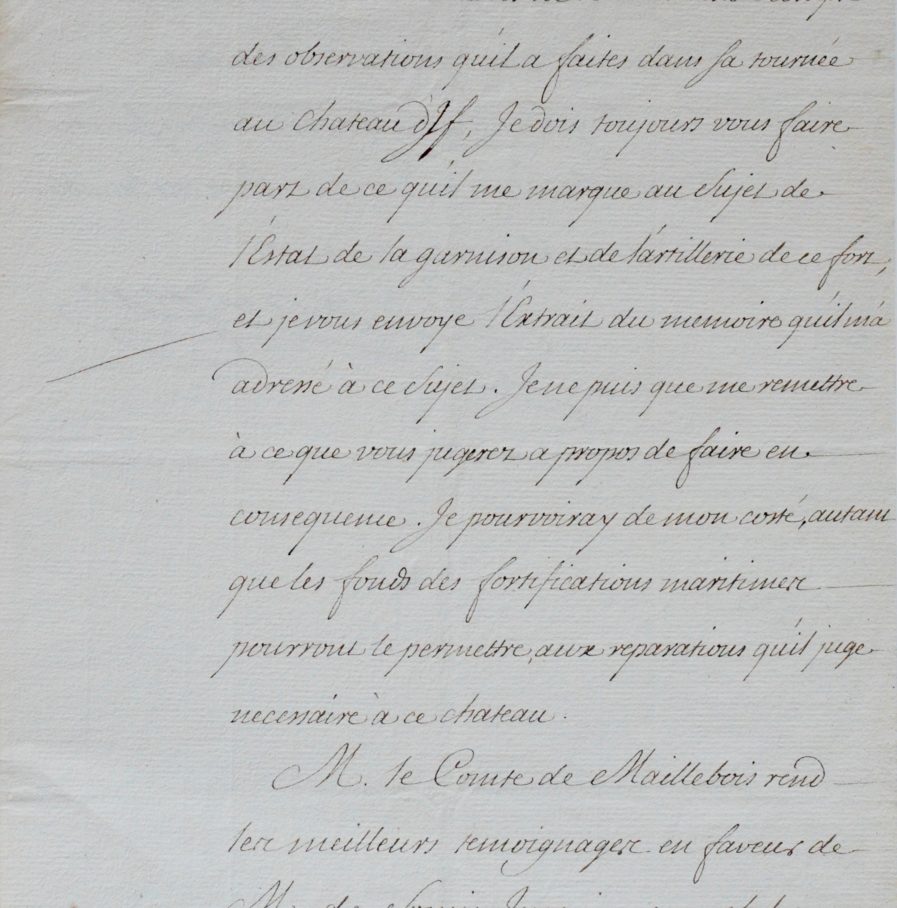 des observations qu'il a faites dans sa tournée
au Chateau d'If, Je dois toujours vous faire
part de ce qu'il me marque au Sujet de
l'Estat de la garnison et de l'artillerie de ce fort,
et je vous envoye l'Extrait du memoire qu'il m'a
adressé à ce Sujet. Je ne puis que me remettre
à ce que vous jugerez a propos de faire en
consequence. Je pourvoiray de mon costé, autant
que les fonds des fortifications maritimes
pourront le permettre, aux reparations qu'il juge
necessaire à ce chateau.
M. le Comte de Maillebois rend
les meilleurs temoignages en faveur de
M. de